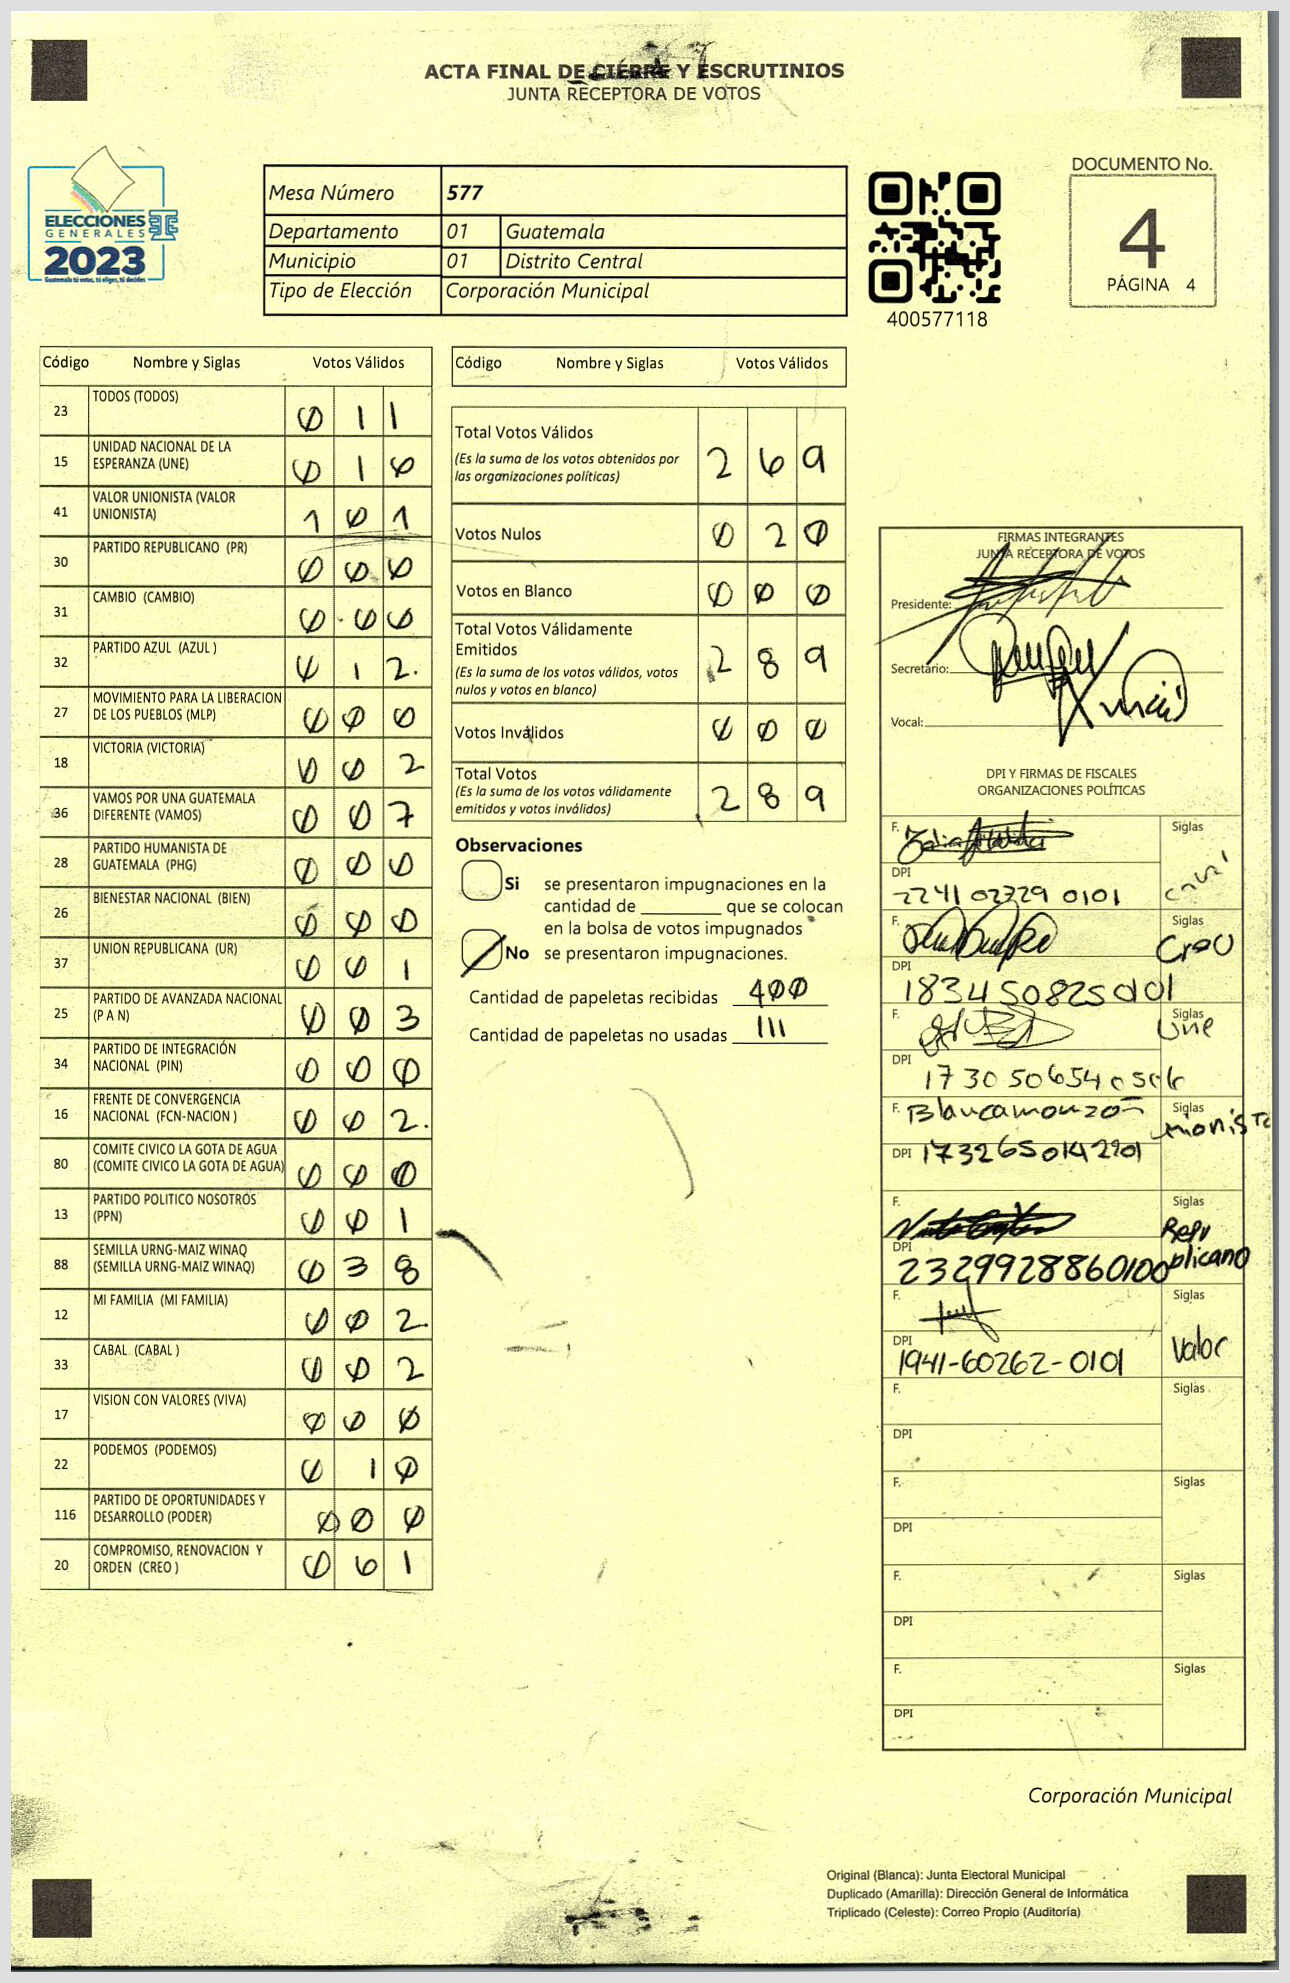 ACTA FINAL DE CIERRE Y ESCRUTINIOS
JUNTA RECEPTORA DE VOTOS
ELECCIONES
GENERALES
2023
Guatemala tú votas, tú eliges, tú decides
Mesa Número 577
Departamento 01 Guatemala
Municipio 01 Distrito Central
Tipo de Elección Corporación Municipal
400577118
DOCUMENTO No.
4
PÁGINA 4
Código Nombre y Siglas Votos Válidos
23 TODOS (TODOS) 0 1 1
15 UNIDAD NACIONAL DE LA ESPERANZA (UNE) 0 1 6
41 VALOR UNIONISTA (VALOR UNIONISTA) 1 0 1
30 PARTIDO REPUBLICANO (PR) 0 0 0
31 CAMBIO (CAMBIO) 0 0 0
32 PARTIDO AZUL (AZUL ) 0 1 2
27 MOVIMIENTO PARA LA LIBERACION DE LOS PUEBLOS (MLP) 0 0 0
18 VICTORIA (VICTORIA) 0 0 2
36 VAMOS POR UNA GUATEMALA DIFERENTE (VAMOS) 0 0 7
28 PARTIDO HUMANISTA DE GUATEMALA (PHG) 0 0 0
26 BIENESTAR NACIONAL (BIEN) 0 0 0
37 UNION REPUBLICANA (UR) 0 0 1
25 PARTIDO DE AVANZADA NACIONAL (P A N) 0 0 3
34 PARTIDO DE INTEGRACIÓN NACIONAL (PIN) 0 0 0
16 FRENTE DE CONVERGENCIA NACIONAL (FCN-NACION ) 0 0 2
80 COMITE CIVICO LA GOTA DE AGUA (COMITE CIVICO LA GOTA DE AGUA) 0 0 0
13 PARTIDO POLITICO NOSOTROS (PPN) 0 0 1
88 SEMILLA URNG-MAIZ WINAQ (SEMILLA URNG-MAIZ WINAQ) 0 3 8
12 MI FAMILIA (MI FAMILIA) 0 0 2
33 CABAL (CABAL ) 0 0 2
17 VISION CON VALORES (VIVA) 0 0 0
22 PODEMOS (PODEMOS) 0 1 0
116 PARTIDO DE OPORTUNIDADES Y DESARROLLO (PODER) 0 0 0
20 COMPROMISO, RENOVACION Y ORDEN (CREO ) 0 6 1
Código Nombre y Siglas Votos Válidos
Total Votos Válidos 2 6 9
(Es la suma de los votos obtenidos por
las organizaciones políticas)
Votos Nulos 0 2 0
Votos en Blanco 0 0 0
Total Votos Válidamente
Emitidos 2 8 9
(Es la suma de los votos válidos, votos
nulos y votos en blanco)
Votos Inválidos 0 0 0
Total Votos 2 8 9
(Es la suma de los votos válidamente
emitidos y votos inválidos)
Observaciones
Si se presentaron impugnaciones en la
cantidad de ________ que se colocan
en la bolsa de votos impugnados
No se presentaron impugnaciones.
Cantidad de papeletas recibidas 400
Cantidad de papeletas no usadas 111
FIRMAS INTEGRANTES
JUNTA RECEPTORA DE VOTOS
Presidente:
Secretario:
Vocal:
DPI Y FIRMAS DE FISCALES
ORGANIZACIONES POLÍTICAS
F. Siglas
DPI 2241 02729 0101
F. Siglas Creo
DPI 1834508250101
F. Siglas Une
DPI 1730506540506
F. Blancamonzon Siglas unionista
DPI 1732650142201
F. Siglas Republicano
DPI 2329928860100
F. Siglas Valor
DPI 1941-60262-0101
F. Siglas
DPI
F. Siglas
DPI
F. Siglas
DPI
F. Siglas
DPI
Corporación Municipal
Original (Blanca): Junta Electoral Municipal
Duplicado (Amarilla): Dirección General de Informática
Triplicado (Celeste): Correo Propio (Auditoría)